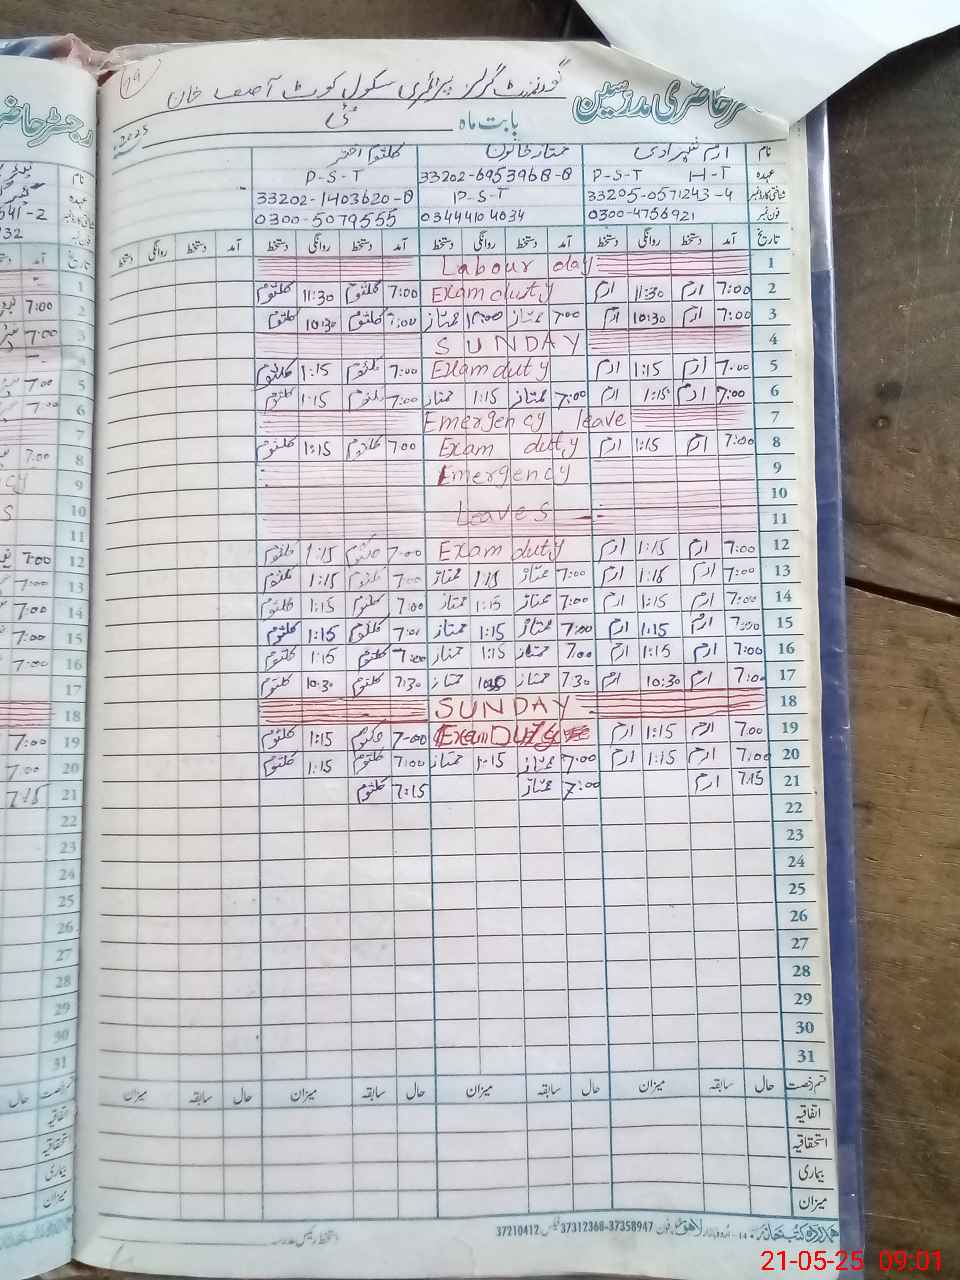 رجسٹر حاضری مدرسین
گورنمنٹ گرلز پرائمری سکول کوٹ آصف خان
19
بابت ماہ مئی 2025ء
نام ارم شہزادی ممتاز خاتون کلثوم اختر
عہدہ H-T P-S-T 33202-6953968-8 P-S-T
شناختی کارڈ نمبر 33205-0571243-4 P-S-T 33202-1403620-8
فون نمبر 0300-4756921 03444104034 0300-5079555
تاریخ آمد دستخط روانگی دستخط آمد دستخط روانگی دستخط آمد دستخط روانگی دستخط آمد دستخط روانگی دستخط
1 Labour day
2 7:00 ارم 11:30 ارم Exam duty 7:00 کلثوم 11:30 کلثوم
3 7:00 ارم 10:30 ارم 7:00 ممتاز ممتاز 7:00 کلثوم 10:30 کلثوم
4 SUNDAY
5 7:00 ارم 1:15 ارم Exam duty 7:00 کلثوم 1:15 کلثوم
6 7:00 ارم 1:15 ارم 7:00 ممتاز 1:15 ممتاز 7:00 کلثوم 1:15 کلثوم
7 Emergency leave
8 7:00 ارم 1:15 ارم Exam duty 7:00 کلثوم 1:15 کلثوم
9 Emergency
10
11 Leaves
12 7:00 ارم 1:15 ارم Exam duty 7:00 کلثوم 1:15 کلثوم
13 7:00 ارم 1:15 ارم 7:00 ممتاز 1:15 ممتاز 7:00 کلثوم 1:15 کلثوم
14 7:00 ارم 1:15 ارم 7:00 ممتاز 1:15 ممتاز 7:00 کلثوم 1:15 کلثوم
15 7:00 ارم 1:15 ارم 7:00 ممتاز 1:15 ممتاز 7:00 کلثوم 1:15 کلثوم
16 7:00 ارم 1:15 ارم 7:00 ممتاز 1:15 ممتاز 7:00 کلثوم 1:15 کلثوم
17 7:00 ارم 10:30 ارم 7:30 ممتاز ممتاز 7:30 کلثوم 10:30 کلثوم
18 SUNDAY
19 7:00 ارم 1:15 ارم Exam Duty 7:00 کلثوم 1:15 کلثوم
20 7:00 ارم 1:15 ارم 7:00 ممتاز 1:15 ممتاز 7:00 کلثوم 1:15 کلثوم
21 7:15 ارم 7:00 ممتاز 7:15 کلثوم
22
23
24
25
26
27
28
29
30
31
قسم رخصت حال سابقہ میزان حال سابقہ میزان حال سابقہ میزان حال سابقہ میزان
اتفاقیہ
استحقاقیہ
بیماری
میزان
ہمدرد کتب خانہ 14- اردو بازار لاہور فون 37312368-37358947 فیکس 37210412
دستخط رئیس مدرسہ
21-05-25 09:01